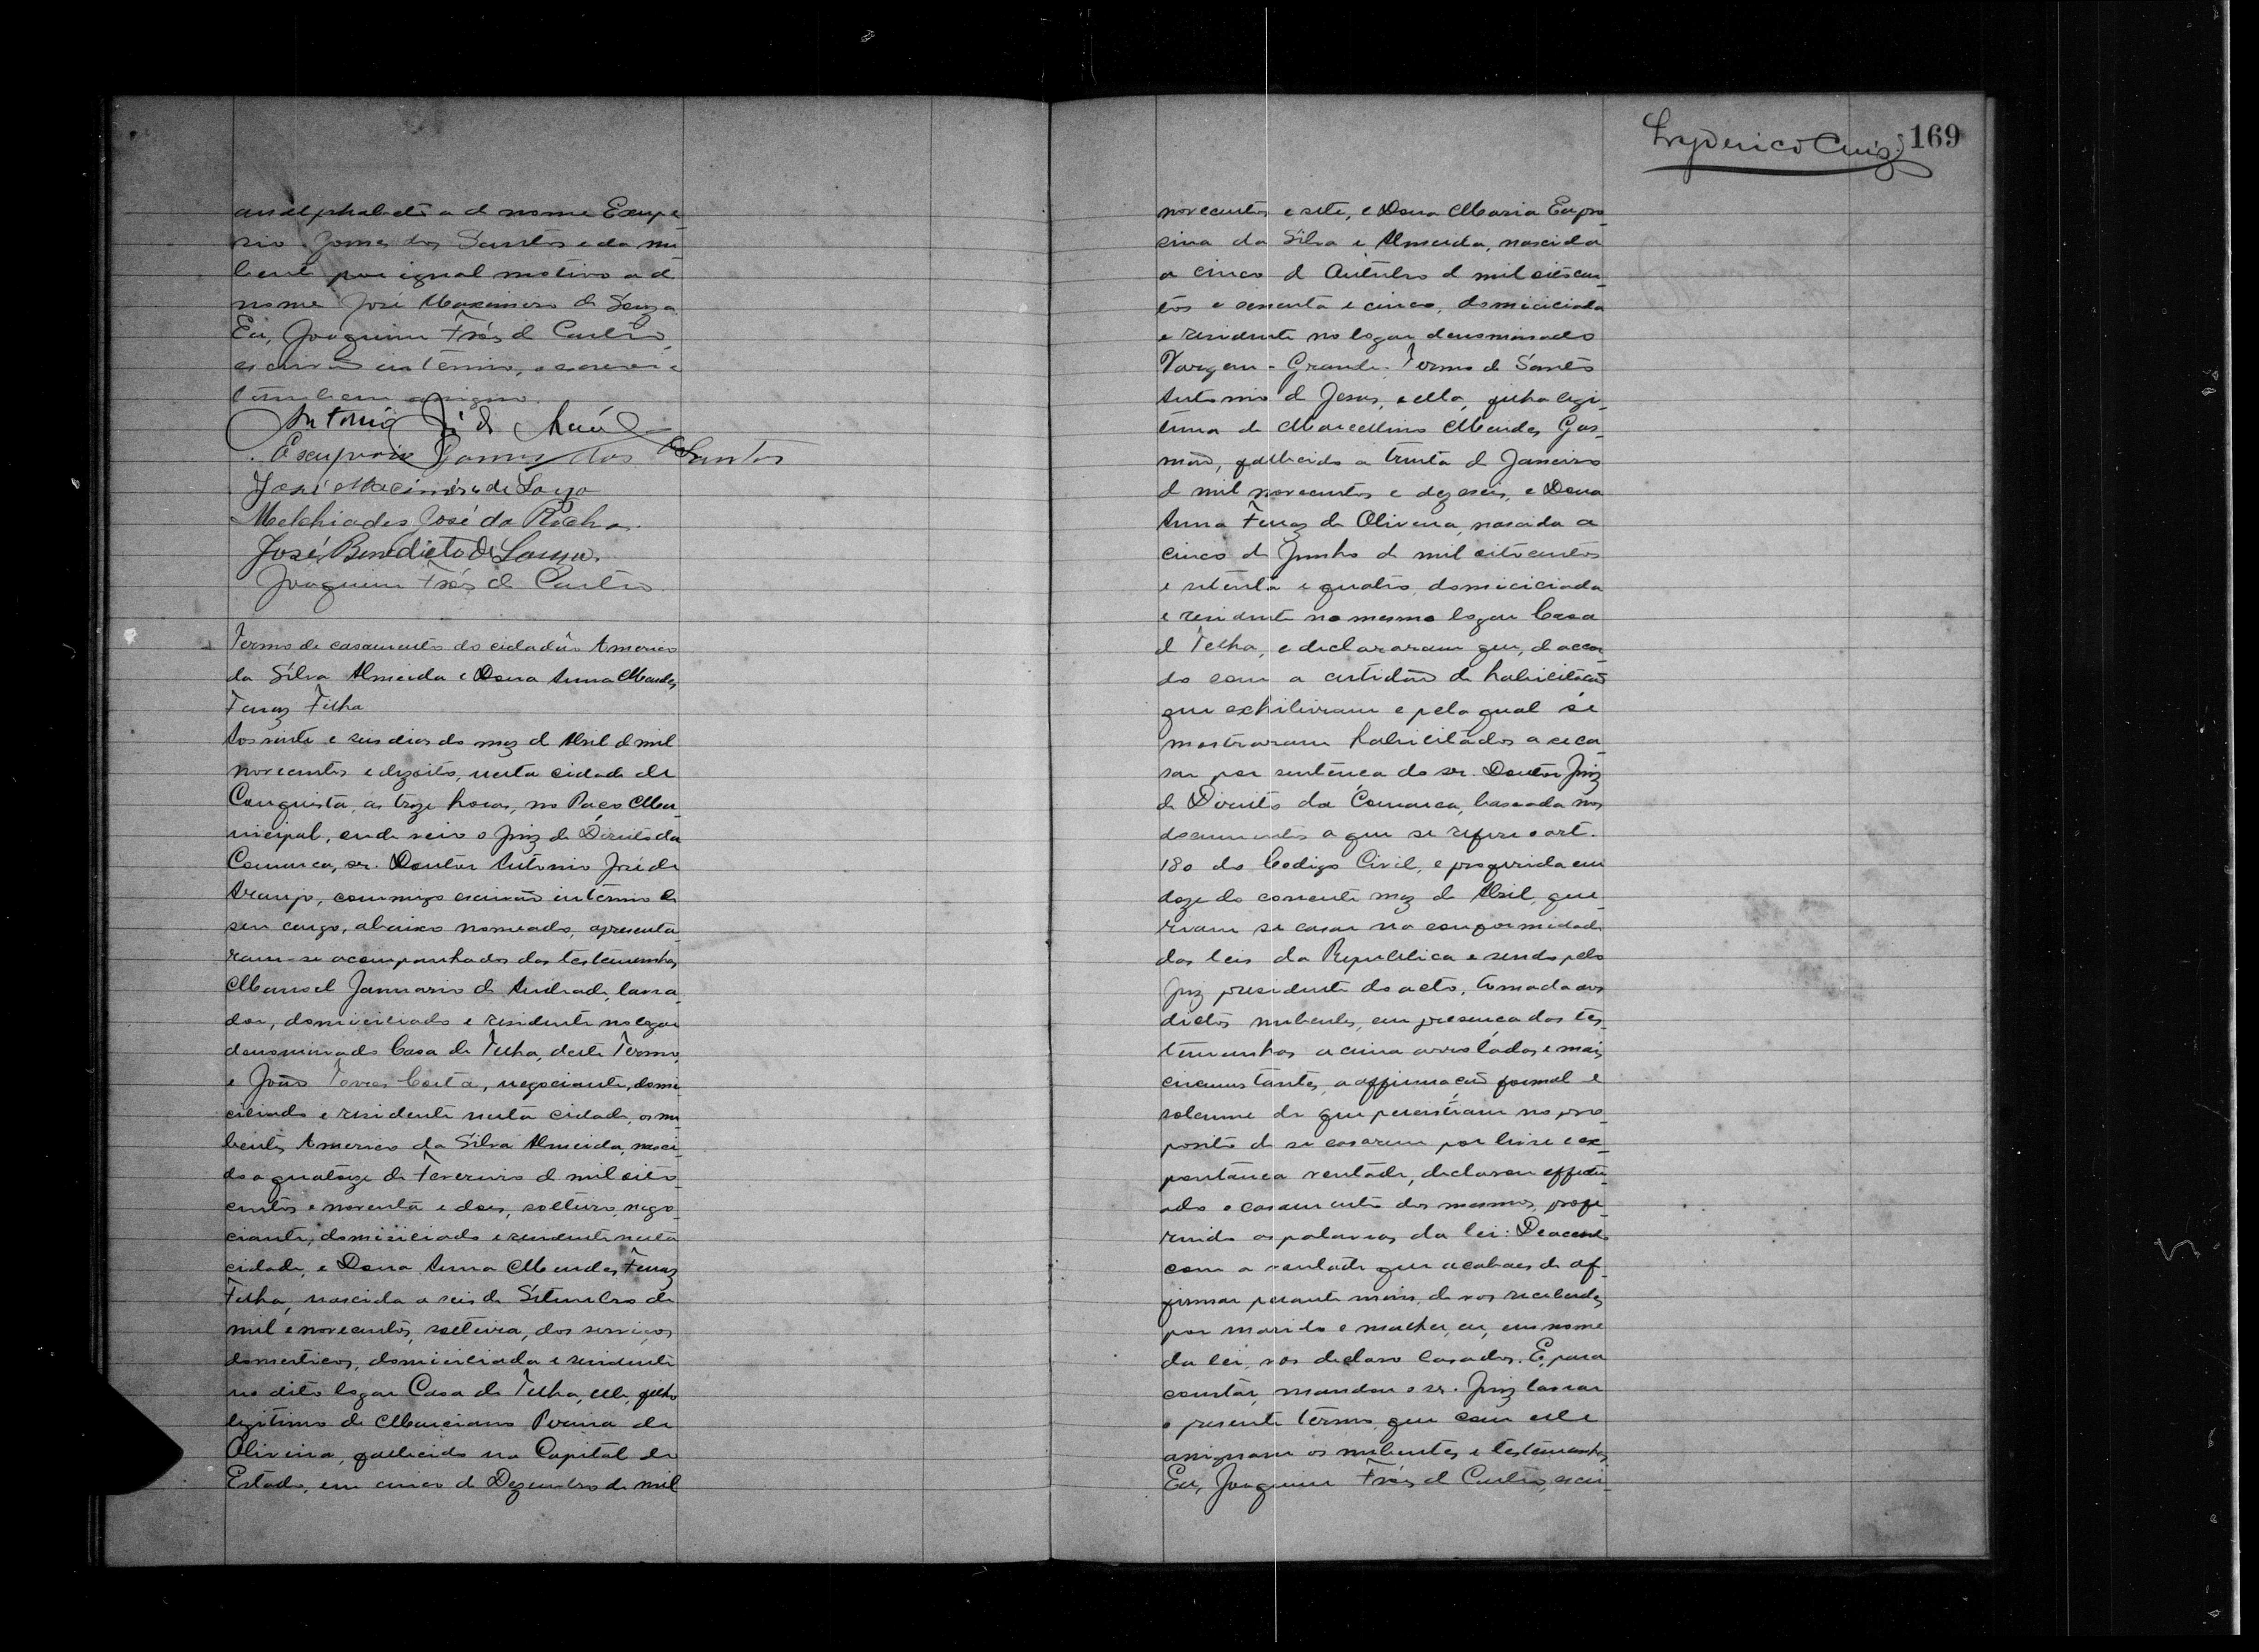 analphabeto a de nome Exupe-
rio Gomes dos Santos e da nu-
bente por igual motivo a de
nome José Maximiano de Souza
Eu, Joaquim Fróes de Castro,
escrivão interino, o escrevi e
tambem assigno.
Antonio José de Araújo
Exuperio Gomes dos Santos
José de Souza
Melchiades José da Rocha.
José Benedicto de Souza.
Joaquim Fróes de Castro.
Termo de casamento do cidadão Americo
da Silva Almeida e Dona Anna Mendes
Ferraz Filha
Aos vinte e seis dias do mez de Abril de mil
novecentos e dezoito, nesta cidade de
Conquista, as treze horas, no Paço Mu-
nicipal, onde veio o Juiz de Direito da
Comarca, sr. Doutor Antonio José de
Araujo, commigo escrivão interino de
seu cargo, abaixo nomeado, apresenta-
ram-se acompanhados das testemunhas
Manoel Januario de Andrade, lavra-
dor, domiciliado e residente no logar
denominado Casa de Telha, deste Termo,
e João Torres Costa, negociante, domi-
ciliado e residente nesta cidade, os nu-
bentes Americo da Silva Almeida, nasci-
do a quatorze de Fevereiro de mil oito-
centos e noventa e dois, solteiro, nego-
ciante, domiciliado e residente nesta
cidade, e Dona Anna Mendes Ferraz
Filha, nascida a seis de Setembro de
mil e novecentos, solteira, dos serviços
domesticos, domiciliada e residente
no dito logar Casa de Telha, elle, filho
legitimo de Marciano Pereira de
Oliveira, fallecido na Capital do
Estado, em cinco de Dezembro de mil
Lyderico Cruz 169
novecentos e sete, e Dona Maria Eufro-
sina da Silva e Almeida, nascida
a cinco de Outubro de mil oitocen-
tos e sessenta e cinco, domiciliada
e residente no logar denominado
Vargem-Grande-Termo de Santo
Antonio de Jesus, e ella, filha legi-
tima de Marcellino Mendes Gus-
mão, fallecido a trinta de Janeiro
de mil novecentos e dezeseis, e Dona
Anna Ferraz de Oliveira, nascida a
cinco de Junho de mil oitocentos
e setenta e quatro, domiciliada
e residente no mesmo logar Casa
de Telha, e declararam que, de accor-
do com a certidão de habilitação
que exhibiram e pela qual se
mostraram habilitados a se ca-
sar por sentença do sr. Doutor Juiz
de Direito da Comarca, baseada nos
documentos a que se refere o art.
180 do Codigo Civil, e proferida em
doze do corrente mez de Abril, que-
riam se casar na conformidade
das leis da Republica e sendo pelo
Juiz presidente do acto, tomada aos
dictos nubentes, em presença das tes-
temunhas acima arroladas e mais
circumstantes, a affirmação formal e
solemne de que persistiam no pro-
posito de se casarem por livre e ex-
pontanea vontade, declarou effectu-
ado o casamento dos mesmos, profe-
rindo as palavras da lei: De accordo
com a vontade que acabaes de af-
firmar perante mim, de vos receberdes
por marido e mulher, eu, em nome
da lei, vos declaro casados. E, para
constar, mandou o sr. Juiz lavrar
o presente termo, que com elle
assignam os nubentes e testemunhas
Eu, Joaquim Fróes de Castro, escri-